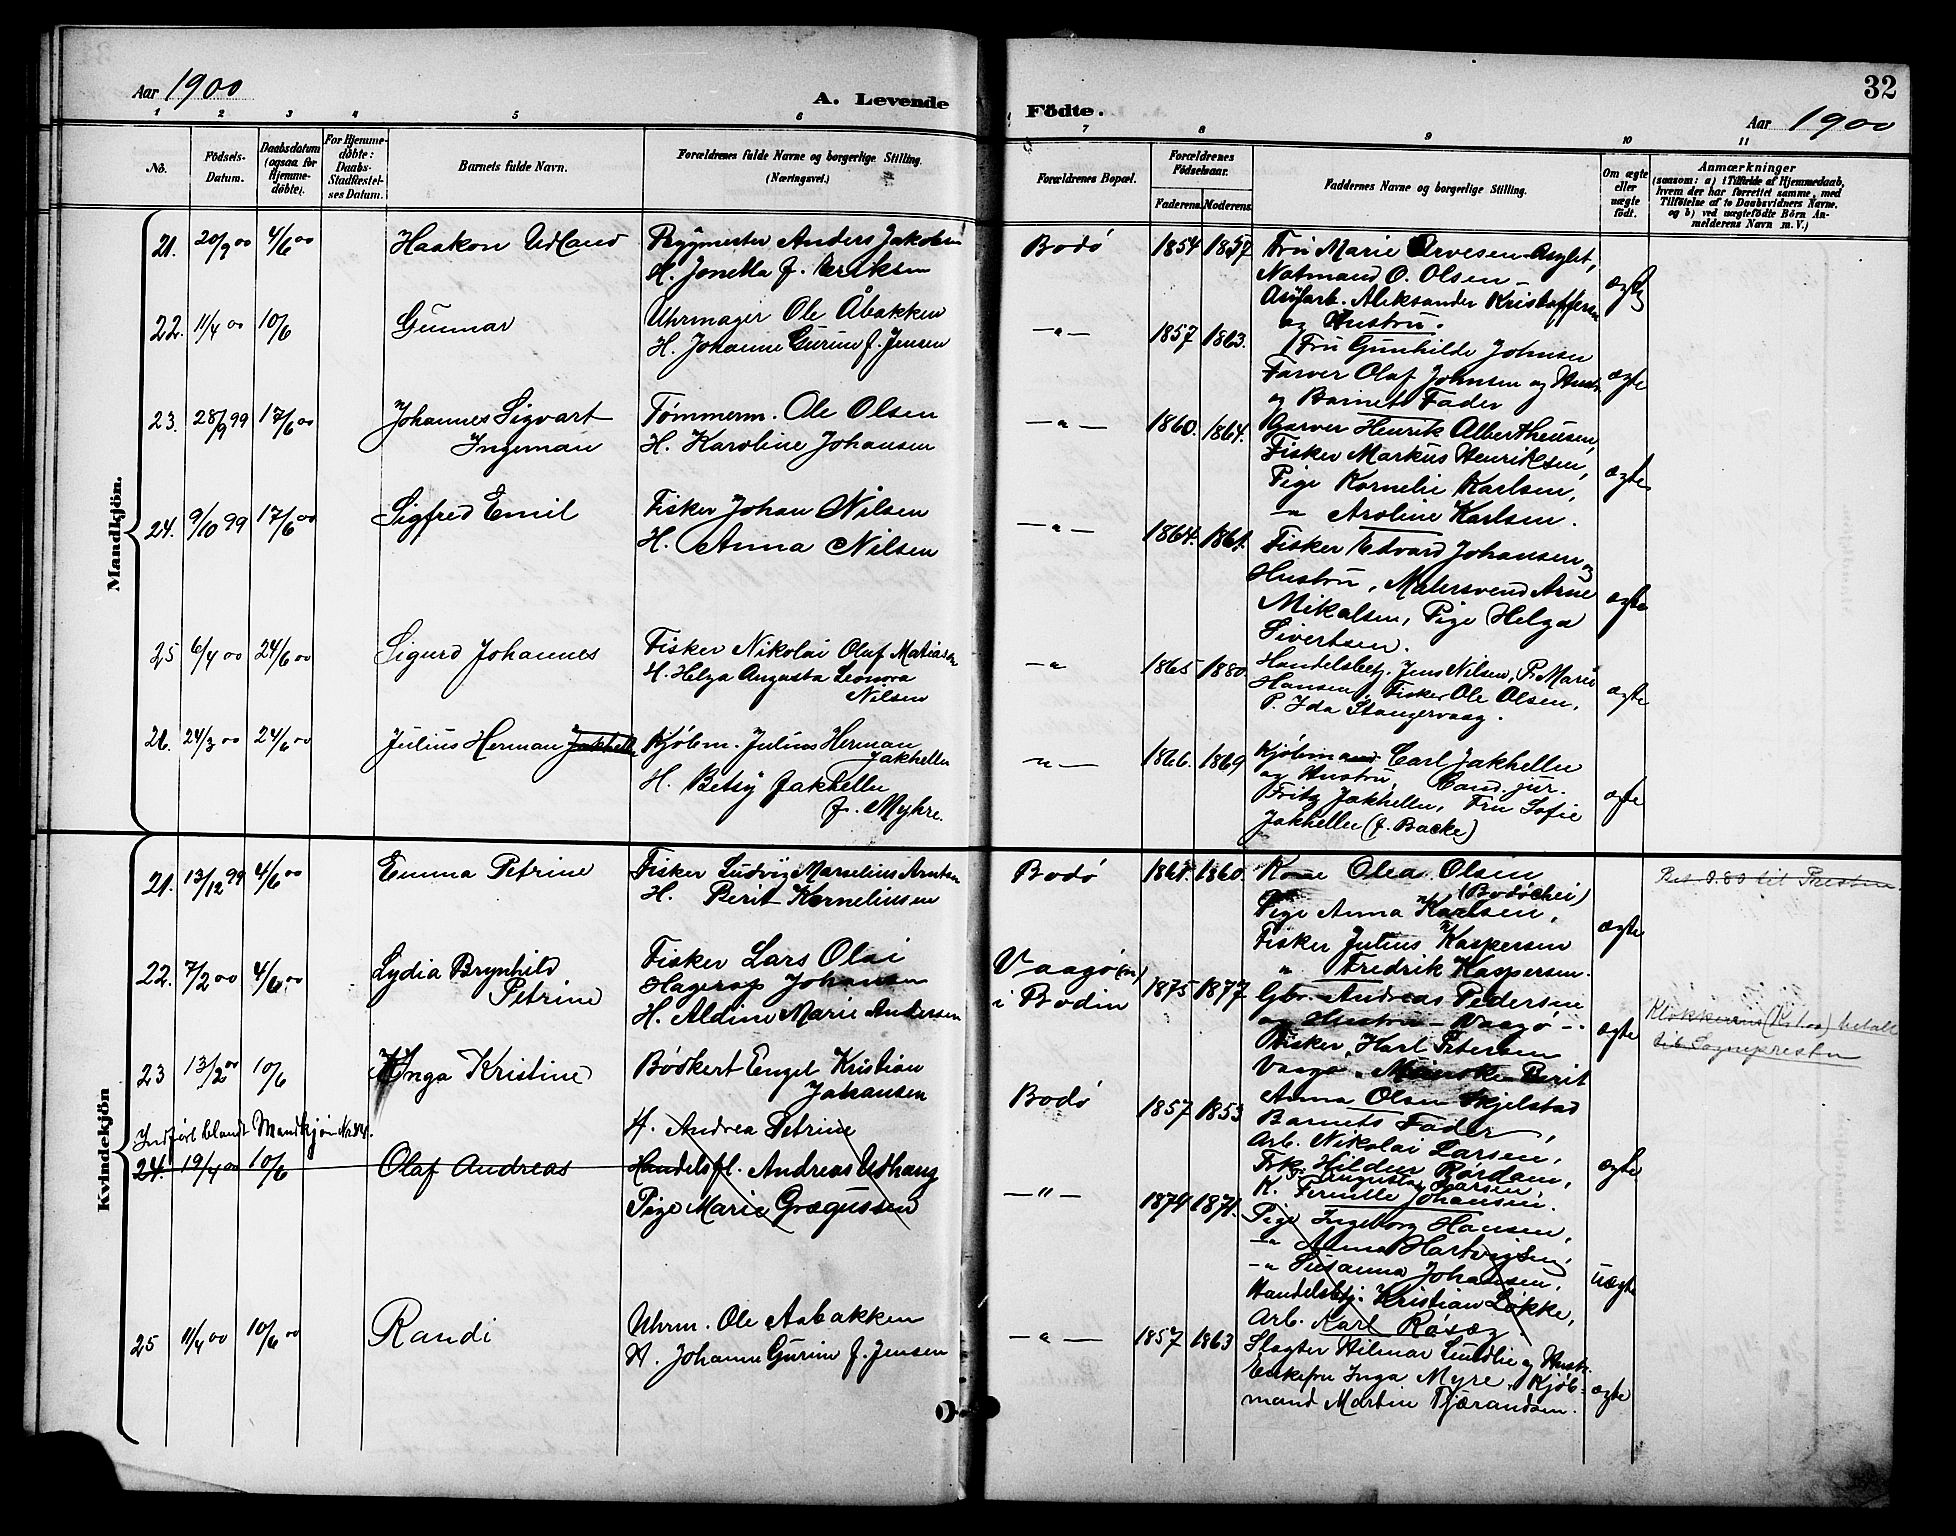 Aar 1900
A. Levende
Födte.
32
Aar 1900
1 2 3 4 5 6 7 8 9 10 11
No.
Födsels-Datum.
Daabsdatum (ogsaa for Hjemmedöbte).
For Hjemmedöbte: Daabs-Stadfæstelses Datum.
Barnets fulde Navn.
Forældrenes fulde Navne og borgerlige Stilling. (Næringsvei.)
Forældrenes Bopæl.
Forældrenes Födselsaar.
Faderens. Moderens.
Faddernes Navne og borgerlige Stilling.
Om ægte eller uægte födt.
Anmærkninger
(saasom: a) i Tilfælde af Hjemmedaab,
hvem der har forrettet samme, med
Tilföielse af to Daabsvidners Navne.
og b) ved uægtefödte Börn An-
melderens Navn m. V.)
Mandkjön.
21. 20/3 00 4/6 00 Haakon Udland
Anders Jakobsen
H. Jonetta f. Eriksen
Bodø 1854 1857
Fru Marie Arvesen
Natmand O. Olsen
Aleksander Kristoffersen
og Hustru.
ægte
22. 11/4 00 10/6 Gunnar
Uhrmager Ole Åbakken
H. Johanne Gurine f. Jensen
—"— 1857 1863.
Fru Gunhilde Johnsen
Farver Olaf Johnsen og Hustr.
og Barnets Fader
ægte
23. 28/9 99 17/6 00 Johannes Sigvart
Ingeman
Tømmerm. Ole Olsen
H. Karoline Johansen
—"— 1860. 1864.
Garver Henrik Albertheusen,
Fisker Markus Henriksen,
Pige Kornelie Karlsen,
—"— Aroline Karlsen.
ægte
24. 9/10 99 17/6 00 Sigfred Emil
Fisker Johan Nilsen
H. Anna Nilsen
—"— 1864. 1861.
Fisker Edvard Johansen og
Hustru, Malersvend Arne
Mikalsen, Pige Helga
Sivertsen.
ægte
25 6/4 00 24/6 00 Sigurd Johannes
Fisker Nikolai Olaf Matiasen
H. Helga Augusta Leonora
Nilsen
—" 1865 1880
Handelsbetj. Jens Nilsen, P. Marie
Hansen, Fisker Ole Olsen,
P. Ida Stangervaag.
ægte
26. 24/3 00 24/6 00 Julius Herman Jakhelln
Kjøbm. Julius Herman
Jakhelln
H. Betsy Jakhelln
f. Myhre.
—"— 1866. 1869
Kjøbmand Carl Jakhelln
og Hustru, Cand. jur.
Fritz Jakhelln, Fru Sofie
Jakhelln (f. Backe)
ægte
Kvindekjön
21. 13/12 99 4/6 00 Emma Petrine
Fisker Ludvig Marselius Arntsen
H. Berit Kornelius sen
Bodø 1861. 1860.
Kone Olea Olsen
(Bodøhei)
Pige Anna Karlsen,
Fisker Julius Kaspersen
" Fredrik Kaspersen.
ægte
Bet 0.80 til Presten
22. 7/2 00 4/6 00 Lydia Brynhild
Petrine
Fisker Lars Olai
Hagerup Johansen
H. Aldine Marie Andersen
Vaagø
i Bodin 1875 1877
Gbr. Andreas Pedersen
og Hustru — Vaagø —
Fisker Harl Petersen
Vaagø, Berit
ægte
Klokkerens (Kr 1,00) betalt
til Sognepresten
23 13/2 00 10/6 Inga Kristine
Bødkert Engel Kristian
Johansen
H. Andrea Petrine
Bodø 1857 1853
Anna Olsen Skjelstad
Barnets Fader,
Arb. Nikolai Larsen,
Frk. Hildur Rørdam,
P. Augusta Larsen
K. Pernille Johansen.
ægte
Indført blandt Mandkjøn
24. 19/4 00 10/6 Olaf Andreas
Handelsfl. Andreas Udhaug
Pige Marie Grægussen
—"— 1874 1871.
Pige Ingeborg Hansen,
—" Anna Hartvigsen,
—" Susanna Johansen,
Handelsbtj. Kristian Løkke,
Arb. Karl Røsæg.
uægte
25 11/4 00 10/6 00 Randi
Uhrm. Ole Aabakken
H. Johanne Gurine f. Jensen
—"— 1857 1863
Slagter Hilmar Lundlie og Hustr.
Enkefru Inga Myre, Kjøb-
mand Martin Tjærandsen.
ægte